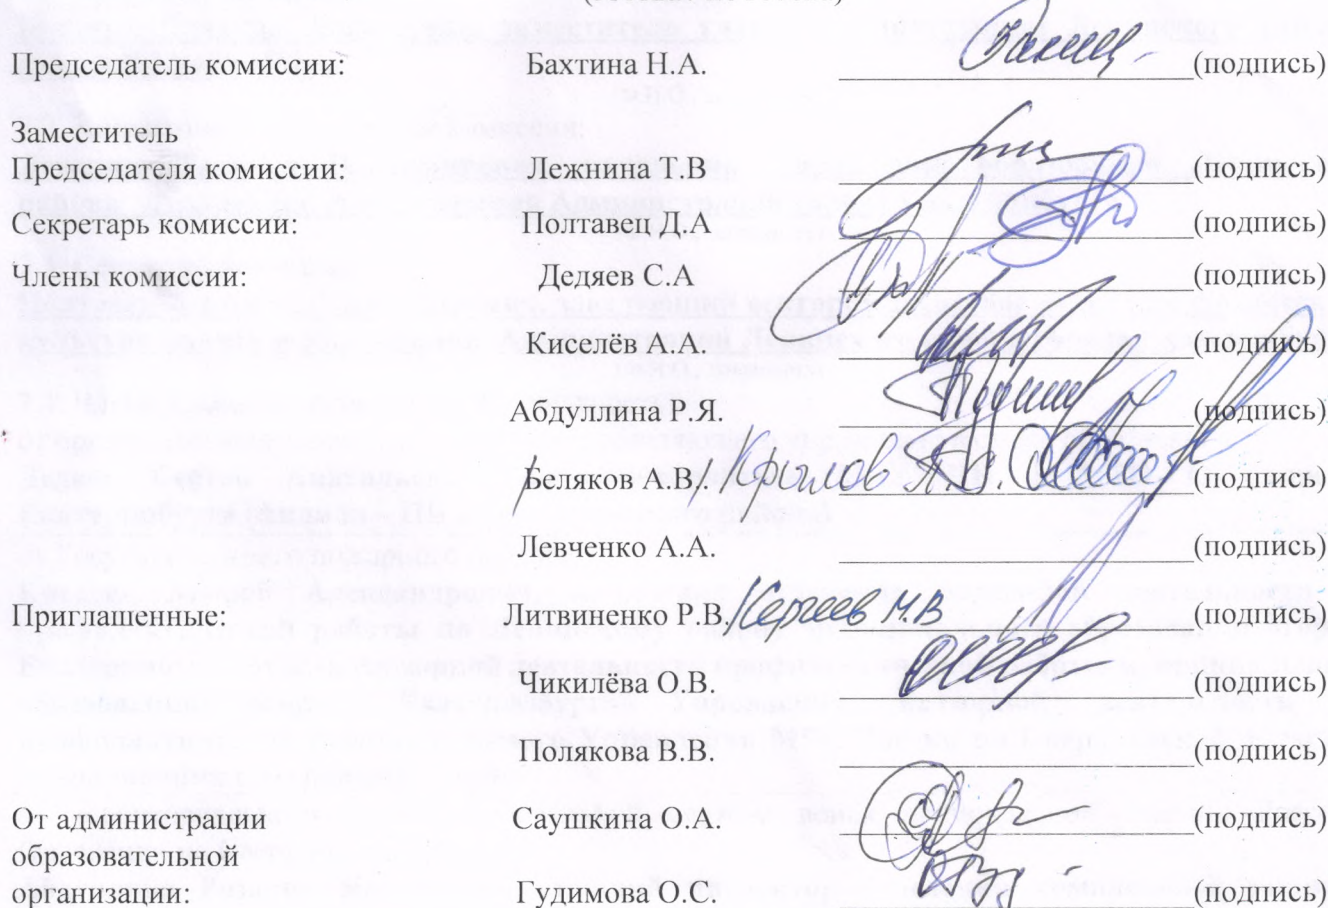 Председатель комиссии: Бахтина Н.А. (подпись)
Заместитель
Председателя комиссии: Лежнина Т.В (подпись)
Секретарь комиссии: Полтавец Д.А (подпись)
Члены комиссии: Дедяев С.А (подпись)
Киселёв А.А. (подпись)
Абдуллина Р.Я. (подпись)
Беляков А.В. / Крылов А.В. (подпись)
Левченко А.А. (подпись)
Приглашенные: Литвиненко Р.В. / Сергеев М.В (подпись)
Чикилёва О.В. (подпись)
Полякова В.В. (подпись)
От администрации Саушкина О.А. (подпись)
образовательной
организации: Гудимова О.С. (подпись)